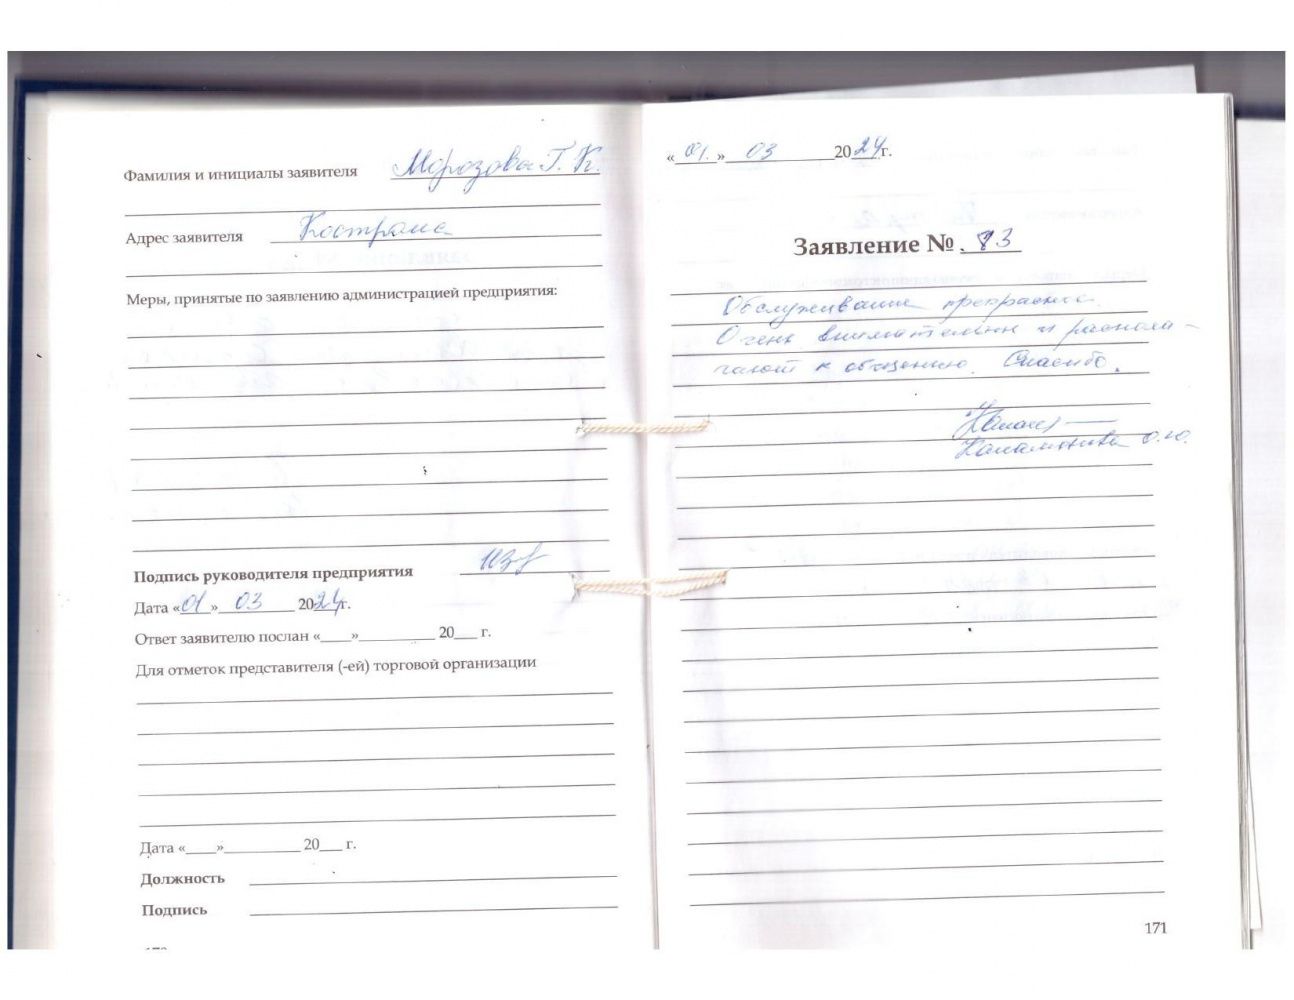 Фамилия и инициалы заявителя Морозова Г. К.
Адрес заявителя Кострома
Меры, принятые по заявлению администрацией предприятия:
Подпись руководителя предприятия
Дата «01» 03 2024г.
Ответ заявителю послан «____»__________ 20___ г.
Для отметок представителя (-ей) торговой организации
Дата «____»__________ 20___ г.
Должность
Подпись
«01.» 03 2024г.
Заявление №
Обслуживание прекрасное.
Очень внимательны и распола-
гают к общению. Спасибо.
О.Ю.
171